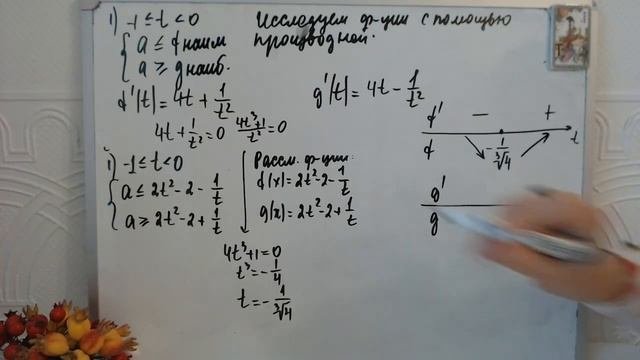 1) -1 ≤ t < 0
{ a ≤ f наим
a ≥ g наиб.
Исследуем ф-ции с помощью
производной.
f'(t) = 4t + 1/t²
4t + 1/t² = 0 (4t³+1)/t² = 0
g'(t) = 4t - 1/t²
1) -1 ≤ t < 0
{ a ≤ 2t² - 2 - 1/t
a ≥ 2t² - 2 + 1/t
Рассм. ф-ции:
f(x) = 2t² - 2 - 1/t
g(x) = 2t² - 2 + 1/t
4t³ + 1 = 0
t³ = -1/4
t = -1/∛4
f' − +
f -1/∛4 t
g'
g